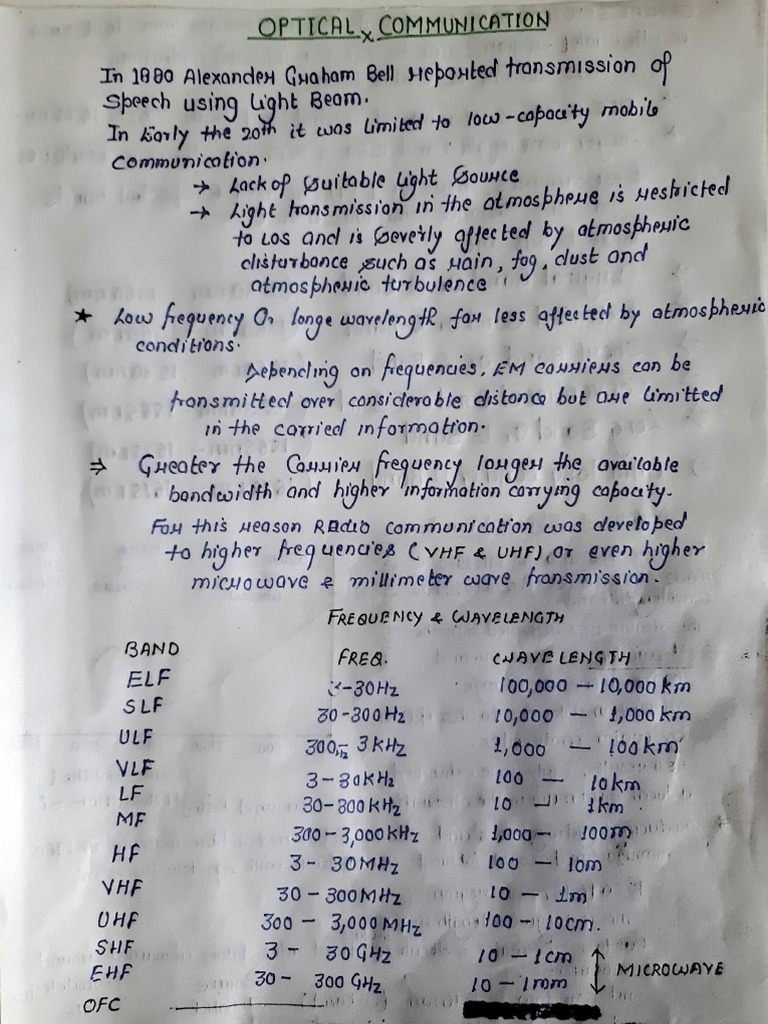 OPTICAL x COMMUNICATION
In 1880 Alexander Graham Bell reported transmission of
Speech using Light Beam.
In Early the 20th it was Limited to low-capacity mobile
communication.
→ Lack of Suitable Light Source
→ Light transmission in the atmosphere is restricted
to LOS and is Severly affected by atmospheric
disturbance such as rain, fog, dust and
atmospheric turbulence
★ Low frequency Or longe wavelength far less affected by atmospheric
conditions.
Depending on frequencies, EM carriers can be
transmitted over considerable distance but are limitted
in the carried information.
⇒ Greater the Carrier frequency larger the available
bandwidth and higher information carrying capacity.
For this reason Radio communication was developed
to higher frequencies (VHF & UHF), or even higher
microwave & millimeter wave transmission.
FREQUENCY & WAVELENGTH
BAND FREQ. WAVELENGTH
ELF 3-30Hz 100,000 - 10,000 km
SLF 30-300Hz 10,000 - 1,000 km
ULF 300Hz- 3KHz 1,000 - 100km
VLF 3-30KHz 100 - 10km
LF 30-300KHz 10 - 1km
MF 300-3,000kHz 1,000 - 100m
HF 3- 30MHz 100 - 10m
VHF 30-300MHz 10 - 1m
UHF 300 - 3,000 MHz 100 - 10cm.
SHF 3 - 30GHz 10 - 1cm
EHF 30 - 300 GHz 10 - 1mm MICROWAVE
OFC